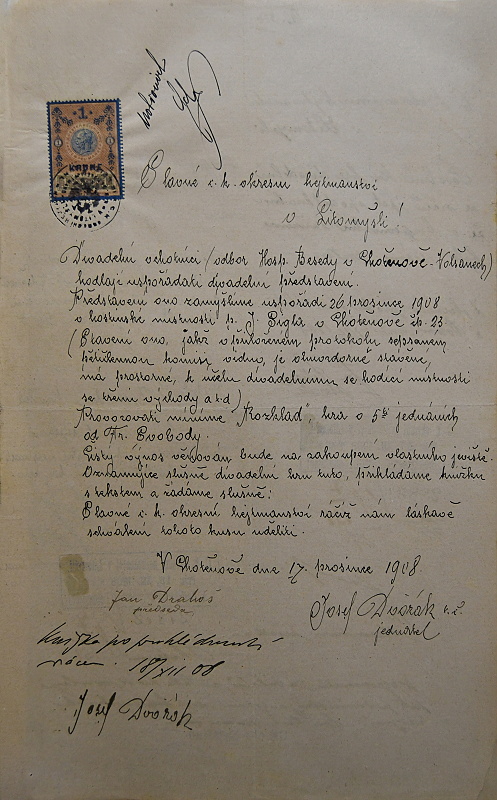 1
Slavné c. k. okresní hejtmanství
v Litomyšli!
Divadelní ochotníci (odbor Hosp. Besedy v Chotěnově-Volšanech)
hodlají uspořádati divadelní představení.
Představení ono zamýšlíme uspořádti 26 prosince 1908
v hostinské místnosti p. J. Gigla v Chotěnově čp. 23
(Stavení ono, jakž v přiloženém protokolu sepsaném
pětičlennou komisí vidno, je ohnivzdorně stavěné,
má prostorné, k účelu divadelnímu se hodící místnosti
se třemi východy a t. d.)
Provozovati míníme "Rozklad", hra o 5ti jednáních
od Fr. Svobody.
Čistý výnos věnován bude na zakoupení vlastního jeviště.
Oznamujíce slušně divadelní hru tuto, přikládáme knížku
s tekstem a žádáme slušně:
Slavné c. k. okresní hejtmanství račiž nám láskavě
schválení tohoto kusu uděliti.
V Chotěnově dne 17. prosince 1908
Jan Drahoš
předseda
Josef Dvořák
jednatel
18/XII 08
Josef Dvořák